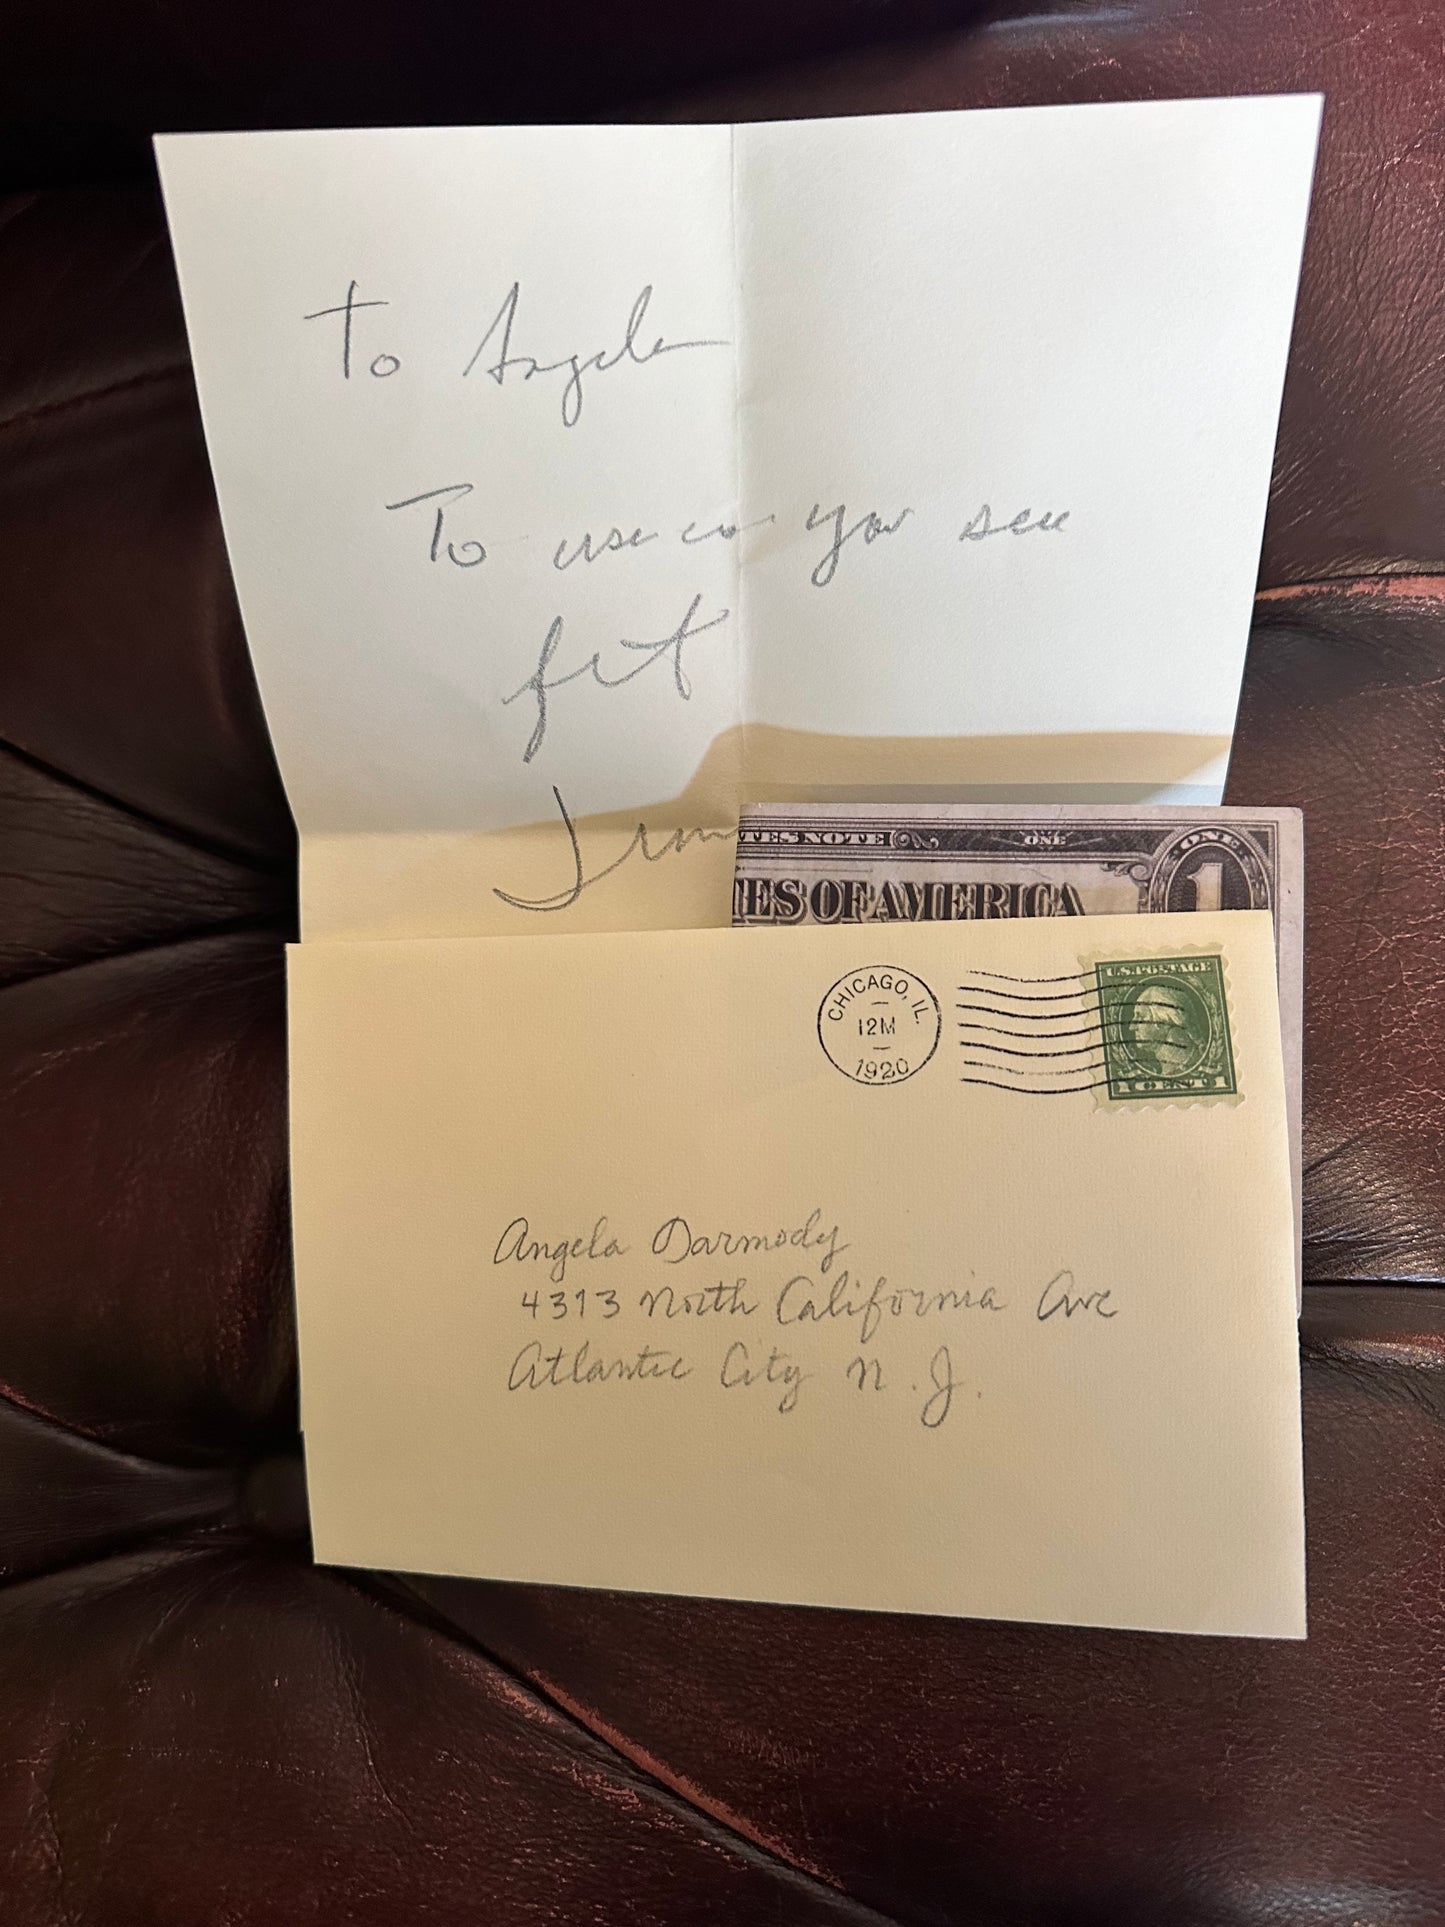 To Angela
To use as you see
fit
Jimm
TES NOTE ONE ONE
TES OF AMERICA 1
CHICAGO, IL.
12M
1920
U.S. POSTAGE
1 CENT 1
Angela Darmody
4313 North California Ave
Atlantic City N.J.